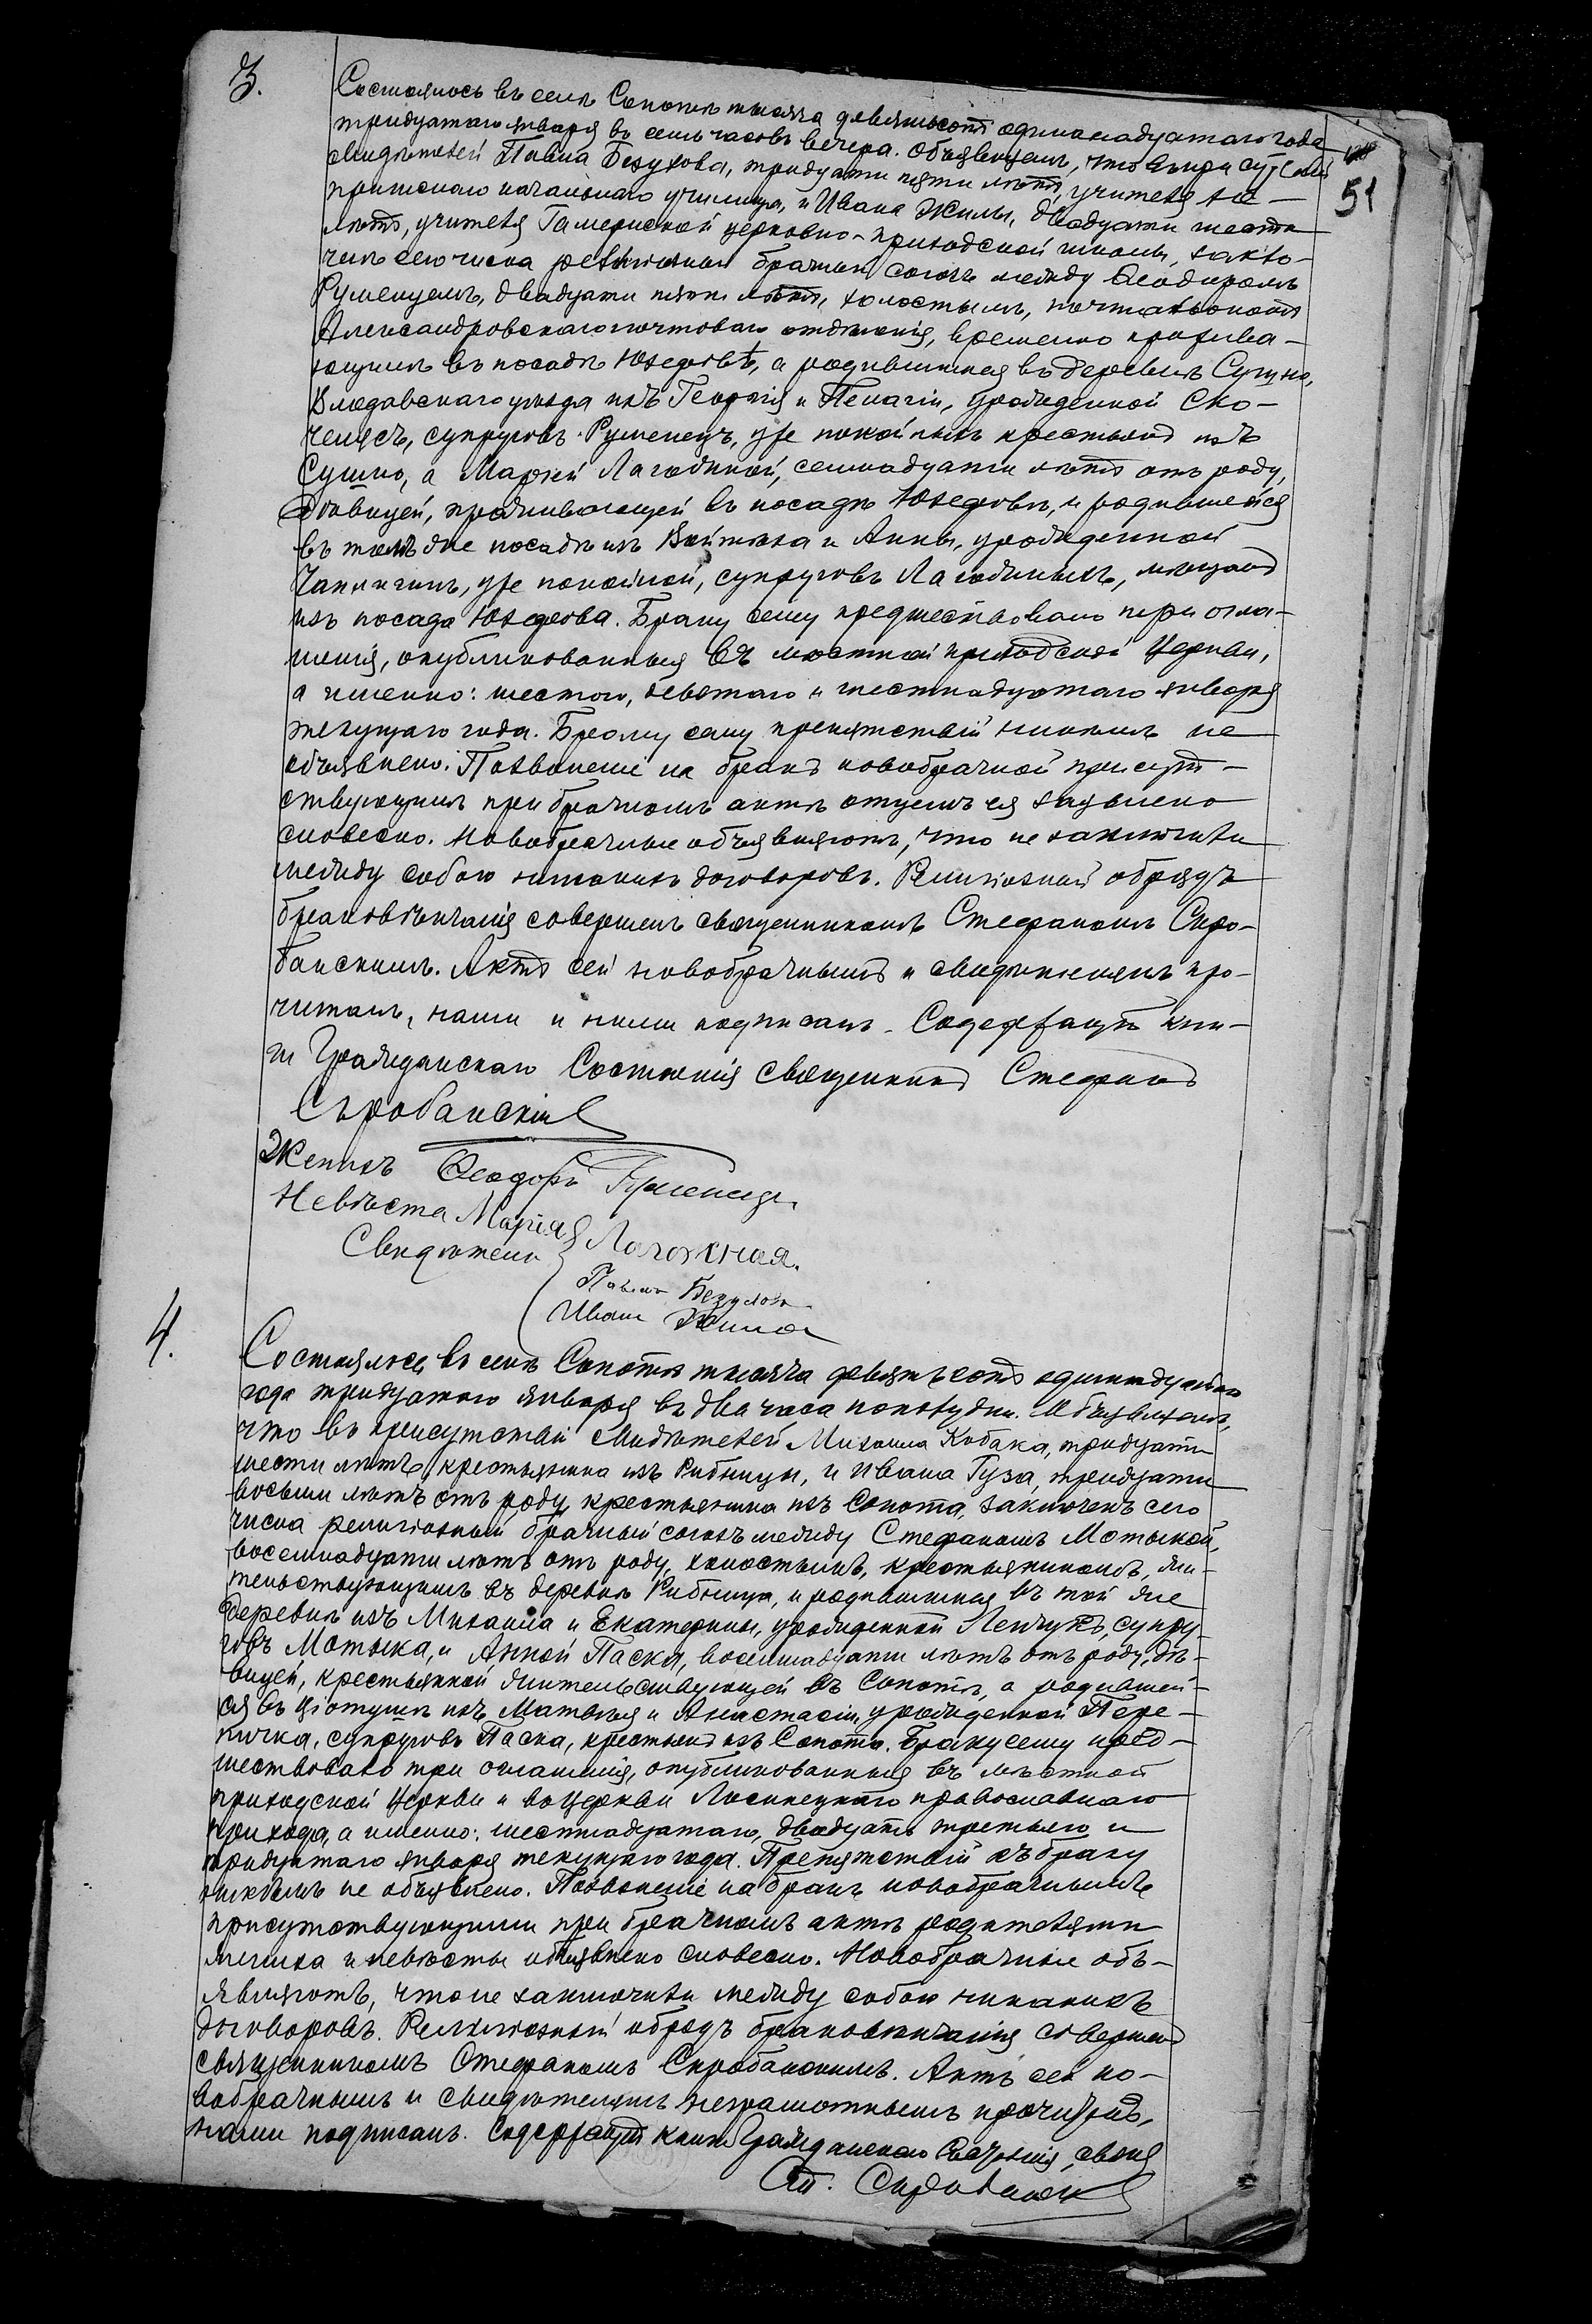 3.
Состоялось въ селѣ Сопотѣ тысяча девятьсотъ одиннадцатаго года
51
тридцатаго января въ семь часовъ вечера. Объявляемъ, что въ присутствіи
свидѣтелей Павла Безухова, тридцати пяти лѣтъ, учителя
начальнаго училища, и Ивана Жилы, двадцати шести
лѣтъ, учителя церковно-приходской школы, заклю-
ченъ сего числа религіозный брачный союзъ между Ѳеодоромъ
Руменцемъ, двадцати пяти лѣтъ, холостымъ, почтальономъ
Александровскаго почтоваго отдѣленія, временно прожива-
ющимъ въ посадѣ Юзефовѣ, а родившимся въ деревнѣ Сушно,
Влодавскаго уѣзда изъ Георгія и Пелагіи, урожденной Ско-
супруговъ Руменецъ, уже покойныхъ крестьянъ изъ
Сушно, а Маріей Лагодиной, семнадцати лѣтъ отъ роду,
дѣвицей, проживающей въ посадѣ Юзефовѣ, и родившейся
въ томъ же посадѣ изъ Войтѣха и Анны, урожденной
уже покойной, супруговъ мѣщанъ
изъ посада Юзефова. Браку сему предшествовало три огла-
шенія, опубликованныя въ мѣстной приходской Церкви,
а именно: шестого, девятаго и шестнадцатаго января
текущаго года. Браку сему препятствій никакихъ не
объявлено. Позволеніе на бракъ новобрачной присут-
ствующимъ при брачномъ актѣ отцемъ ея заявлено
словесно. Новобрачные объявляютъ, что не заключили
между собою никакихъ договоровъ. Религіозный обрядъ
браковѣнчанія совершенъ священникомъ Стефаномъ Скро-
банскимъ. Актъ сей новобрачнымъ и свидѣтелямъ про-
читанъ, нами и ними подписанъ. Содержащій кни-
ги Гражданскаго Состоянія священникъ Стефанъ
Скробанскій
Женихъ Ѳеодоръ Руменецъ.
Невѣста Марія Лагожная.
Свидѣтели
Павелъ Безуховъ
Иванъ Жила
4.
Состоялось въ селѣ Сопотѣ тысяча девятьсотъ одиннадцатаго
года тридцатаго января въ два часа пополудни. Объявляемъ,
что въ присутствіи свидѣтелей Михаила Кобака, тридцати
шести лѣтъ, крестьянина изъ Рибницы, и Ивана Гуза, тридцати
восьми лѣтъ отъ роду, крестьянина изъ Сопота, заключенъ сего
числа религіозный брачный союзъ между Стефаномъ Мотыкой,
восемнадцати лѣтъ отъ роду, холостымъ, крестьяниномъ, жи-
тельствующимъ въ деревнѣ Рибница, и родившимся въ той же
деревнѣ изъ Михаила и Екатерины, урожденной Левчукъ, супру-
говъ Мотыка, и Анной Паска, восемнадцати лѣтъ отъ роду, дѣ-
вицей, крестьянкой жительствующей въ Сопотѣ, а родившей-
ся въ изъ Матвѣя и Анастасіи, урожденной Пере-
пичка, супруговъ Паска, крестьянъ изъ Сопота. Браку сему пред-
шествовало три оглашенія, опубликованныя въ мѣстной
приходской Церкви и въ церкви Лосинецкаго православнаго
прихода, а именно: шестнадцатаго, двадцать третьяго и
тридцатаго января текущаго года. Препятствій къ браку
никѣмъ не объявлено. Позволеніе на бракъ новобрачнымъ
присутствующими при брачномъ актѣ родителями
жениха и невѣсты объявлено словесно. Новобрачные объ-
являютъ, что не заключили между собою никакихъ
договоровъ. Религіозный обрядъ браковѣнчанія совершенъ
священникомъ Стефаномъ Скробанскимъ. Актъ сей но-
вобрачнымъ и свидѣтелямъ неграмотнымъ прочитанъ,
нами подписанъ. Содержащій книги Гражданскаго Состоянія, священ
Ст. Скробанскій